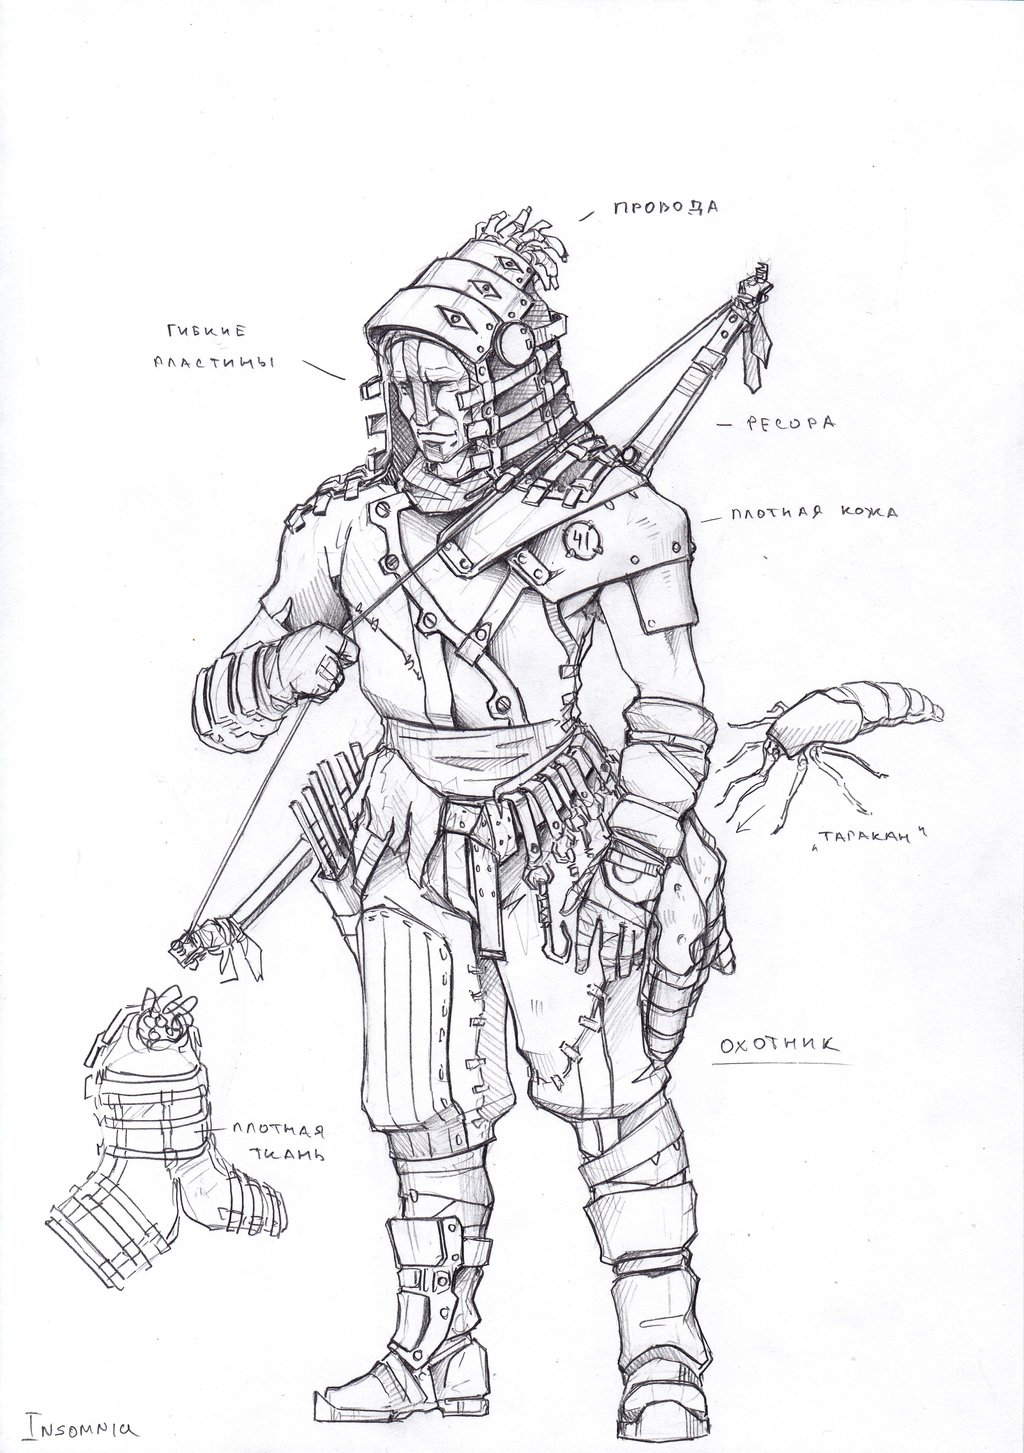 ПРОВОДА
ГИБКИЕ
ПЛАСТИНЫ
РЕСОРА
ПЛОТНАЯ КОЖА
41
„ТАРАКАН"
ОХОТНИК
ПЛОТНАЯ
ТКАНЬ
INSOMNIA